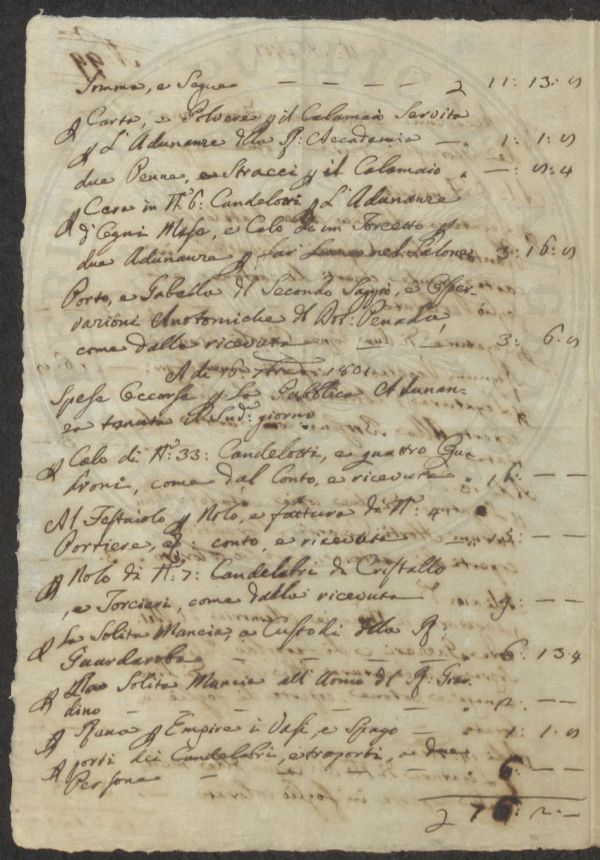 Somma, e Segue — — — — 2 11: 13: 4
p Carta, e Polvere p il Calamaio Servito
p L'Adunanze della R: Accademia — " 1: 1: 4
due Penne, e Stracci p il Calamaio " —: 4: 4
p Cera in N.º 6: Candelotti p L'Adunanze
d'Ogni Mese, e Calo di un Torcetto p
due Adunanze p far Lume nel Salone 3: 16: 4
Porto, e Gabella del Secondo Saggio, e Osser-
vazioni Anatomiche del Dot: Penada,
come dalla ricevuta 3: 6: 4
A di 16: 7bre 1801.
Spese Occorse p La Pubblica Adunan-
za tenuta il Sud.º giorno
p Calo di N.º 33: Candelotti, e quattro
come dal Conto, e ricevuta " 16: — —
Al Festaiolo p Nolo, e fattura di N.º 4
Portiere, conto, e ricevuta — " 5: — —
p Nolo di N.º 7: Candelabri di Cristallo
, e Torcieri, come dalla ricevuta 9: — —
p La Solita Mancia, a Custodi della R:
Guardaroba — — — — 6: 13 4
p La Solita Mancia all'Uomo del R: Giar-
dino — — — — " 2: — —
p Rena p Empire i Vasi, e Spago — " 1: 1: 4
p porti dei Candelabri, e traporti, a due
Persone — — 6: — —
2 76: 2: —